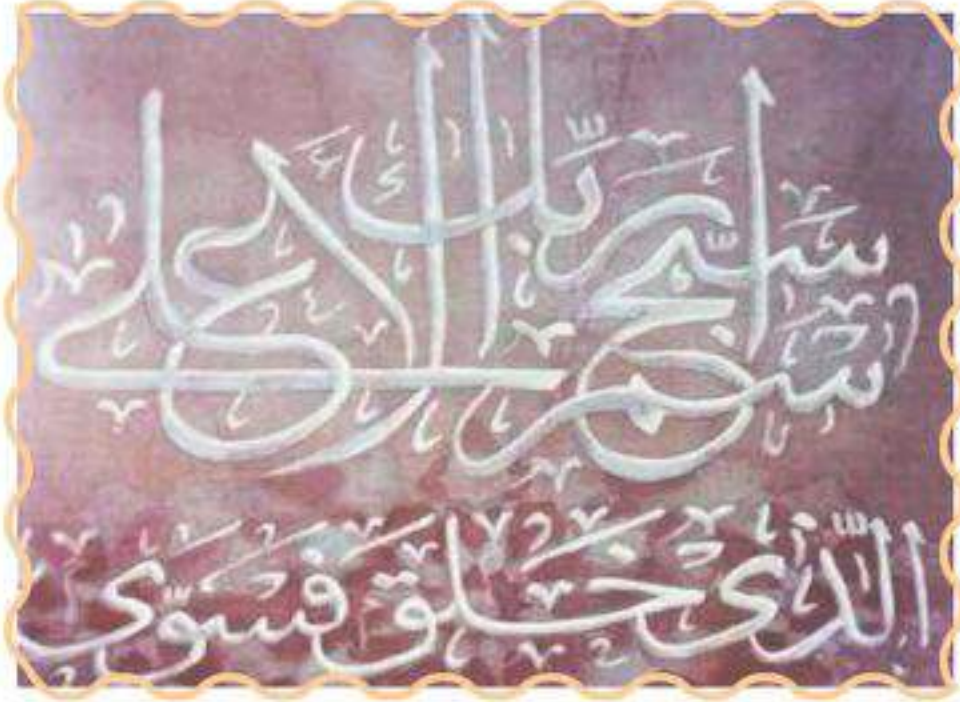 سَبِّحِ اسْمَ رَبِّكَ الْأَعْلَى
الَّذِي خَلَقَ فَسَوَّى